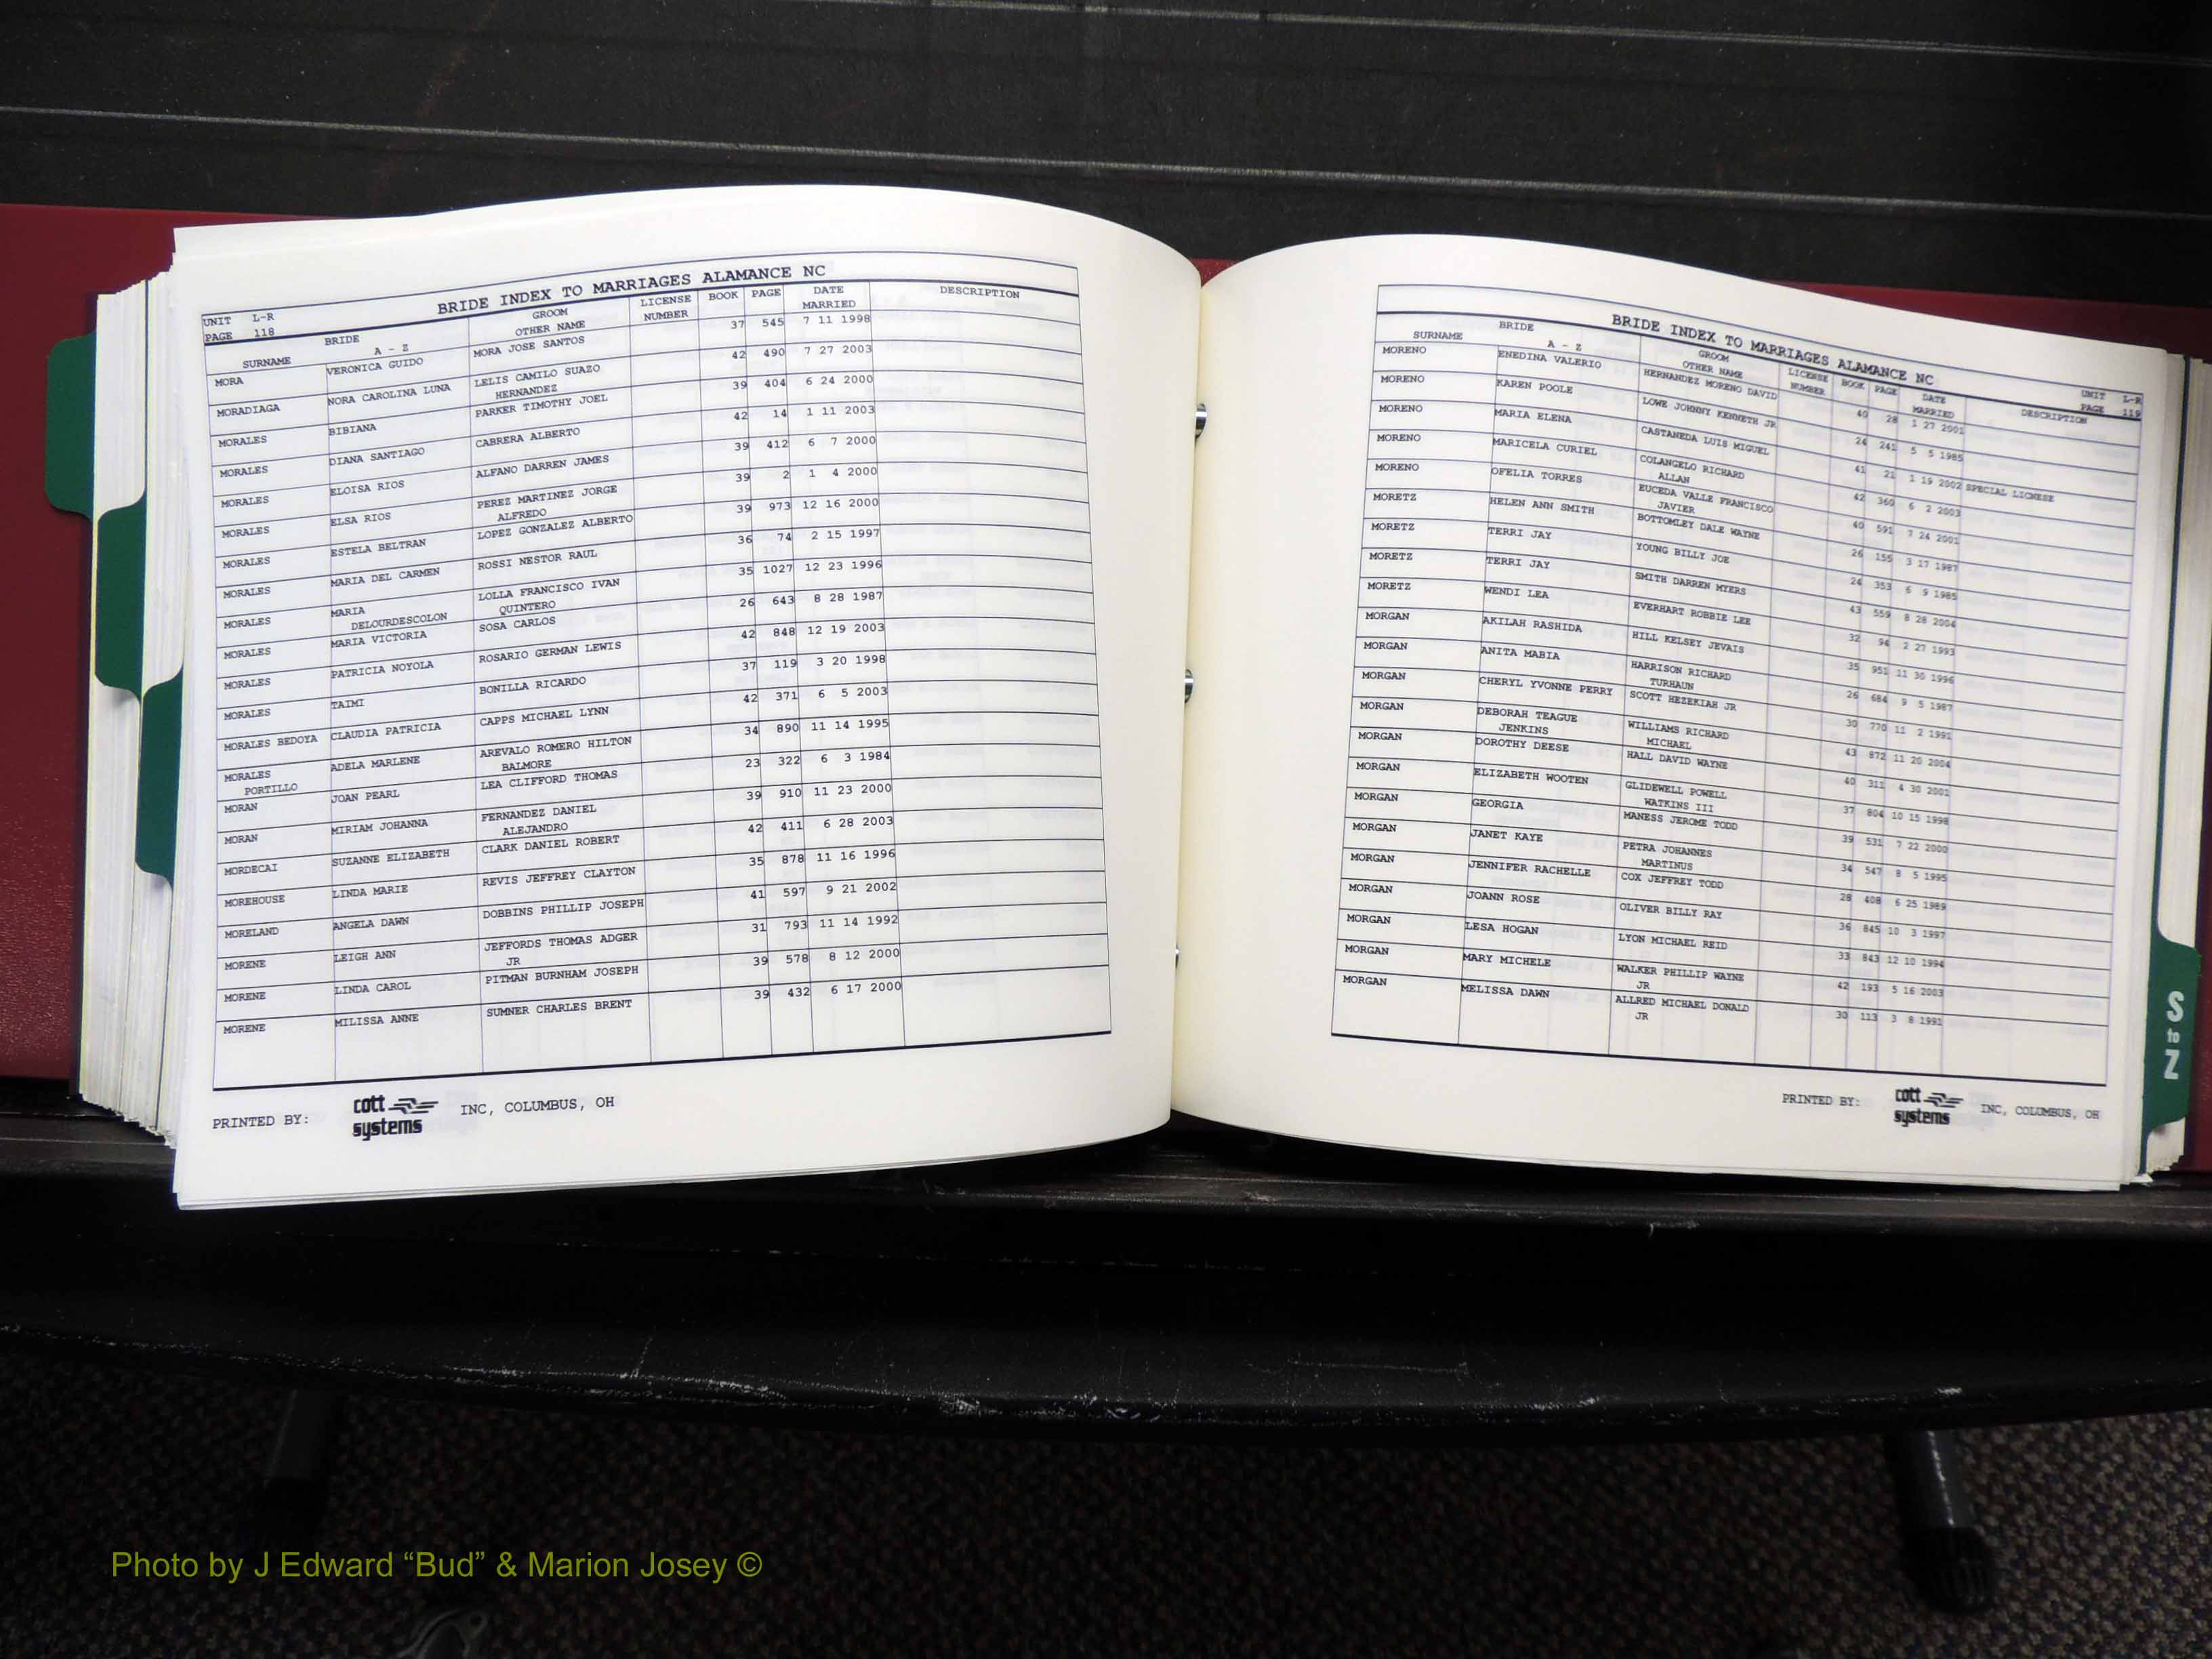 BRIDE INDEX TO MARRIAGES ALAMANCE NC
UNIT L-R
PAGE 118
SURNAME BRIDE A - Z GROOM OTHER NAME LICENSE NUMBER BOOK PAGE DATE MARRIED DESCRIPTION
MORA VERONICA GUIDO MORA JOSE SANTOS 37 545 7 11 1998
MORADIAGA NORA CAROLINA LUNA LELIS CAMILO SUAZO HERNANDEZ 42 490 7 27 2003
MORALES BIBIANA PARKER TIMOTHY JOEL 39 404 6 24 2000
MORALES DIANA SANTIAGO CABRERA ALBERTO 42 14 1 11 2003
MORALES ELOISA RIOS ALFANO DARREN JAMES 39 412 6 7 2000
MORALES ELSA RIOS PEREZ MARTINEZ JORGE ALFREDO 39 2 1 4 2000
MORALES ESTELA BELTRAN LOPEZ GONZALEZ ALBERTO 39 973 12 16 2000
MORALES MARIA DEL CARMEN ROSSI NESTOR RAUL 36 74 2 15 1997
MORALES MARIA DELOURDESCOLON LOLLA FRANCISCO IVAN QUINTERO 35 1027 12 23 1996
MORALES MARIA VICTORIA SOSA CARLOS 26 643 8 28 1987
MORALES PATRICIA NOYOLA ROSARIO GERMAN LEWIS 42 848 12 19 2003
MORALES TAIMI BONILLA RICARDO 37 119 3 20 1998
MORALES BEDOYA CLAUDIA PATRICIA CAPPS MICHAEL LYNN 42 371 6 5 2003
MORALES PORTILLO ADELA MARLENE AREVALO ROMERO HILTON BALMORE 34 890 11 14 1995
MORAN JOAN PEARL LEA CLIFFORD THOMAS 23 322 6 3 1984
MORAN MIRIAM JOHANNA FERNANDEZ DANIEL ALEJANDRO 39 910 11 23 2000
MORDECAI SUZANNE ELIZABETH CLARK DANIEL ROBERT 42 411 6 28 2003
MOREHOUSE LINDA MARIE REVIS JEFFREY CLAYTON 35 878 11 16 1996
MORELAND ANGELA DAWN DOBBINS PHILLIP JOSEPH 41 597 9 21 2002
MORENE LEIGH ANN JEFFORDS THOMAS ADGER JR 31 793 11 14 1992
MORENE LINDA CAROL PITMAN BURNHAM JOSEPH 39 578 8 12 2000
MORENE MILISSA ANNE SUMNER CHARLES BRENT 39 432 6 17 2000
PRINTED BY: cott systems INC, COLUMBUS, OH
BRIDE INDEX TO MARRIAGES ALAMANCE NC
UNIT L-R
PAGE 119
SURNAME BRIDE A - Z GROOM OTHER NAME LICENSE NUMBER BOOK PAGE DATE MARRIED DESCRIPTION
MORENO ENEDINA VALERIO HERNANDEZ MORENO DAVID 40 28 1 27 2001
MORENO KAREN POOLE LOWE JOHNNY KENNETH JR 24 241 5 5 1985
MORENO MARIA ELENA CASTANEDA LUIS MIGUEL 41 21 1 19 2002 SPECIAL LICNESE
MORENO MARICELA CURIEL COLANGELO RICHARD ALLAN 42 360 6 2 2003
MORENO OFELIA TORRES EUCEDA VALLE FRANCISCO JAVIER 40 591 7 24 2001
MORETZ HELEN ANN SMITH BOTTOMLEY DALE WAYNE 26 155 3 17 1987
MORETZ TERRI JAY YOUNG BILLY JOE 24 353 6 9 1985
MORETZ TERRI JAY SMITH DARREN MYERS 43 559 8 28 2004
MORETZ WENDI LEA EVERHART ROBBIE LEE 32 94 2 27 1993
MORGAN AKILAH RASHIDA HILL KELSEY JEVAIS 35 951 11 30 1996
MORGAN ANITA MABIA HARRISON RICHARD TURHAUN 26 684 9 5 1987
MORGAN CHERYL YVONNE PERRY SCOTT HEZEKIAH JR 30 770 11 2 1991
MORGAN DEBORAH TEAGUE JENKINS WILLIAMS RICHARD MICHAEL 43 872 11 20 2004
MORGAN DOROTHY DEESE HALL DAVID WAYNE 40 311 4 30 2001
MORGAN ELIZABETH WOOTEN GLIDEWELL POWELL WATKINS III 37 804 10 15 1998
MORGAN GEORGIA MANESS JEROME TODD 39 531 7 22 2000
MORGAN JANET KAYE PETRA JOHANNES MARTINUS 34 547 8 5 1995
MORGAN JENNIFER RACHELLE COX JEFFREY TODD 28 408 6 25 1989
MORGAN JOANN ROSE OLIVER BILLY RAY 36 845 10 3 1997
MORGAN LESA HOGAN LYON MICHAEL REID 33 843 12 10 1994
MORGAN MARY MICHELE WALKER PHILLIP WAYNE JR 42 193 5 16 2003
MORGAN MELISSA DAWN ALLRED MICHAEL DONALD JR 30 113 3 8 1991
PRINTED BY: cott systems INC, COLUMBUS, OH
S to Z
Photo by J Edward “Bud” & Marion Josey ©